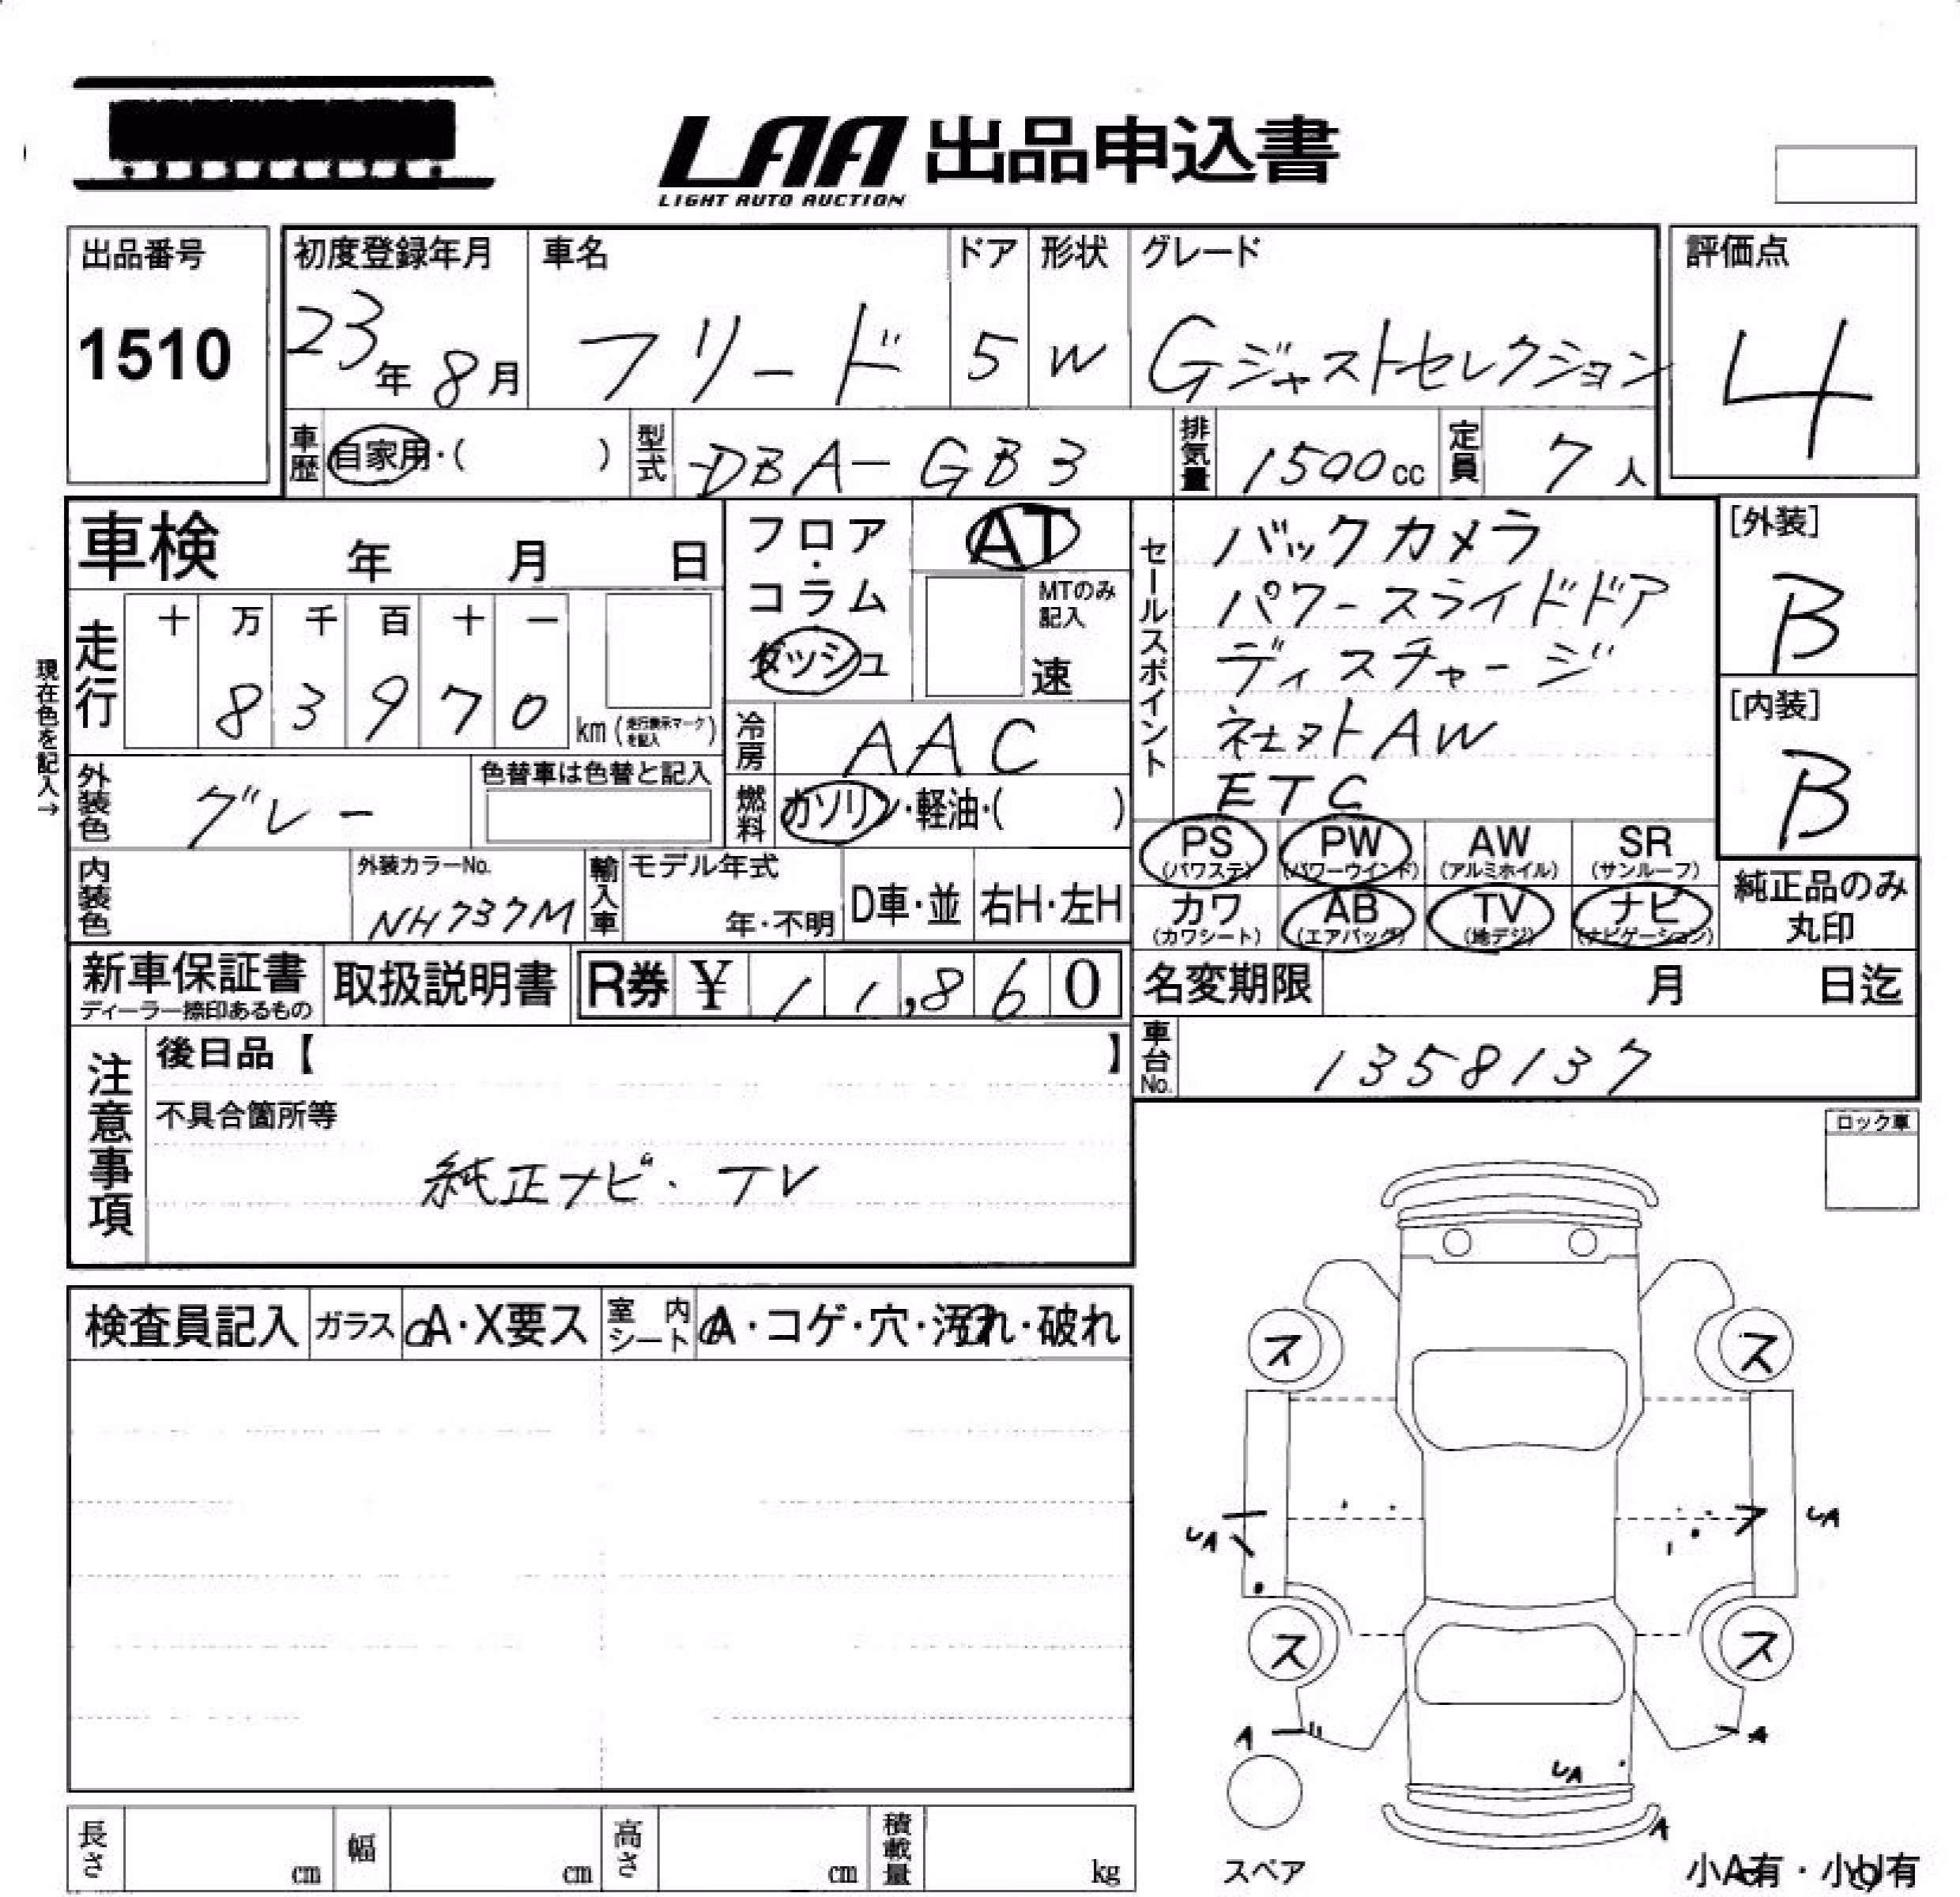 LAA 出品申込書
LIGHT AUTO AUCTION
出品番号
1510
初度登録年月
23年 8月
車名
フリード
ドア
5
形状
W
グレード
Gジャストセレクション
評価点
4
車歴
自家用・( )
型式
DBA-GB3
排気量
1500cc
定員
7人
車検 年 月 日
フロア・コラム
ダッシュ
AT
MTのみ記入
速
セールスポイント
バックカメラ
パワースライドドア
ディスチャージ
AW
ETC
[外装]
B
[内装]
B
現在色を記入→
走行
十 万 千 百 十 一
8 3 9 7 0
km (走行表示マークを記入)
冷房
AAC
外装色
グレー
色替車は色替と記入
燃料
ガソリン・軽油・( )
PS (パワステ)
PW (パワーウインド)
AW (アルミホイル)
SR (サンルーフ)
カワ (カワシート)
AB (エアバック)
TV (地デジ)
ナビ (ナビゲーション)
純正品のみ
丸印
内装色
外装カラーNo.
NH737M
輸入車
モデル年式
年・不明
D車・並
右H・左H
新車保証書
ディーラー捺印あるもの
取扱説明書
R券 ¥ 11,860
名変期限 月 日迄
車台No.
1358137
注意事項
後日品【 】
不具合箇所等
純正ナビ・TV
ロック車
検査員記入
ガラス
A・X要ス
室内シート
A・コゲ・穴・汚れ・破れ
ス
ス
UA
UA
ス
ス
A
A
UA
A
スペア
小A有・小U有
長さ cm
幅 cm
高さ cm
積載量 kg